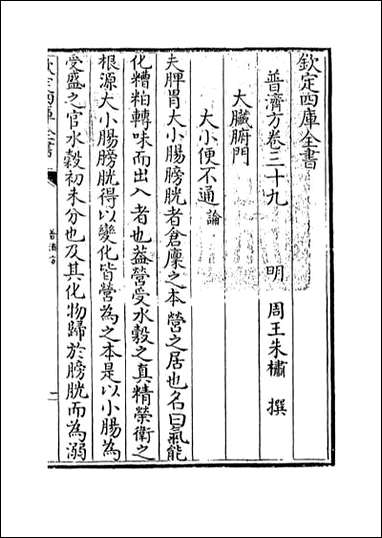 欽定四庫全書
普濟方卷三十九
明 周王朱橚 撰
大臓腑門
大小便不通論
夫脾胃大小腸膀胱者倉廩之本營之居也名曰氣能
化糟粕轉味而出入者也葢營受水穀之真精榮衛之
根源大小腸膀胱得以變化皆營為之本是以小腸為
受盛之官水穀初未分也及其化物歸於膀胱而為溺
欽定四庫全書
普濟方